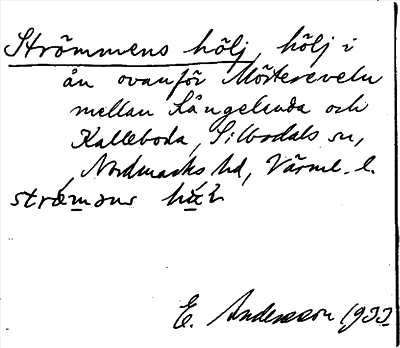 Strömmens hölj, hölj i
ån ovanför Mörtereveln
mellan Långelanda och
Kalleboda, Silbodals sn,
Nordmarks hd, Värml. l.
E. Andersson 1933